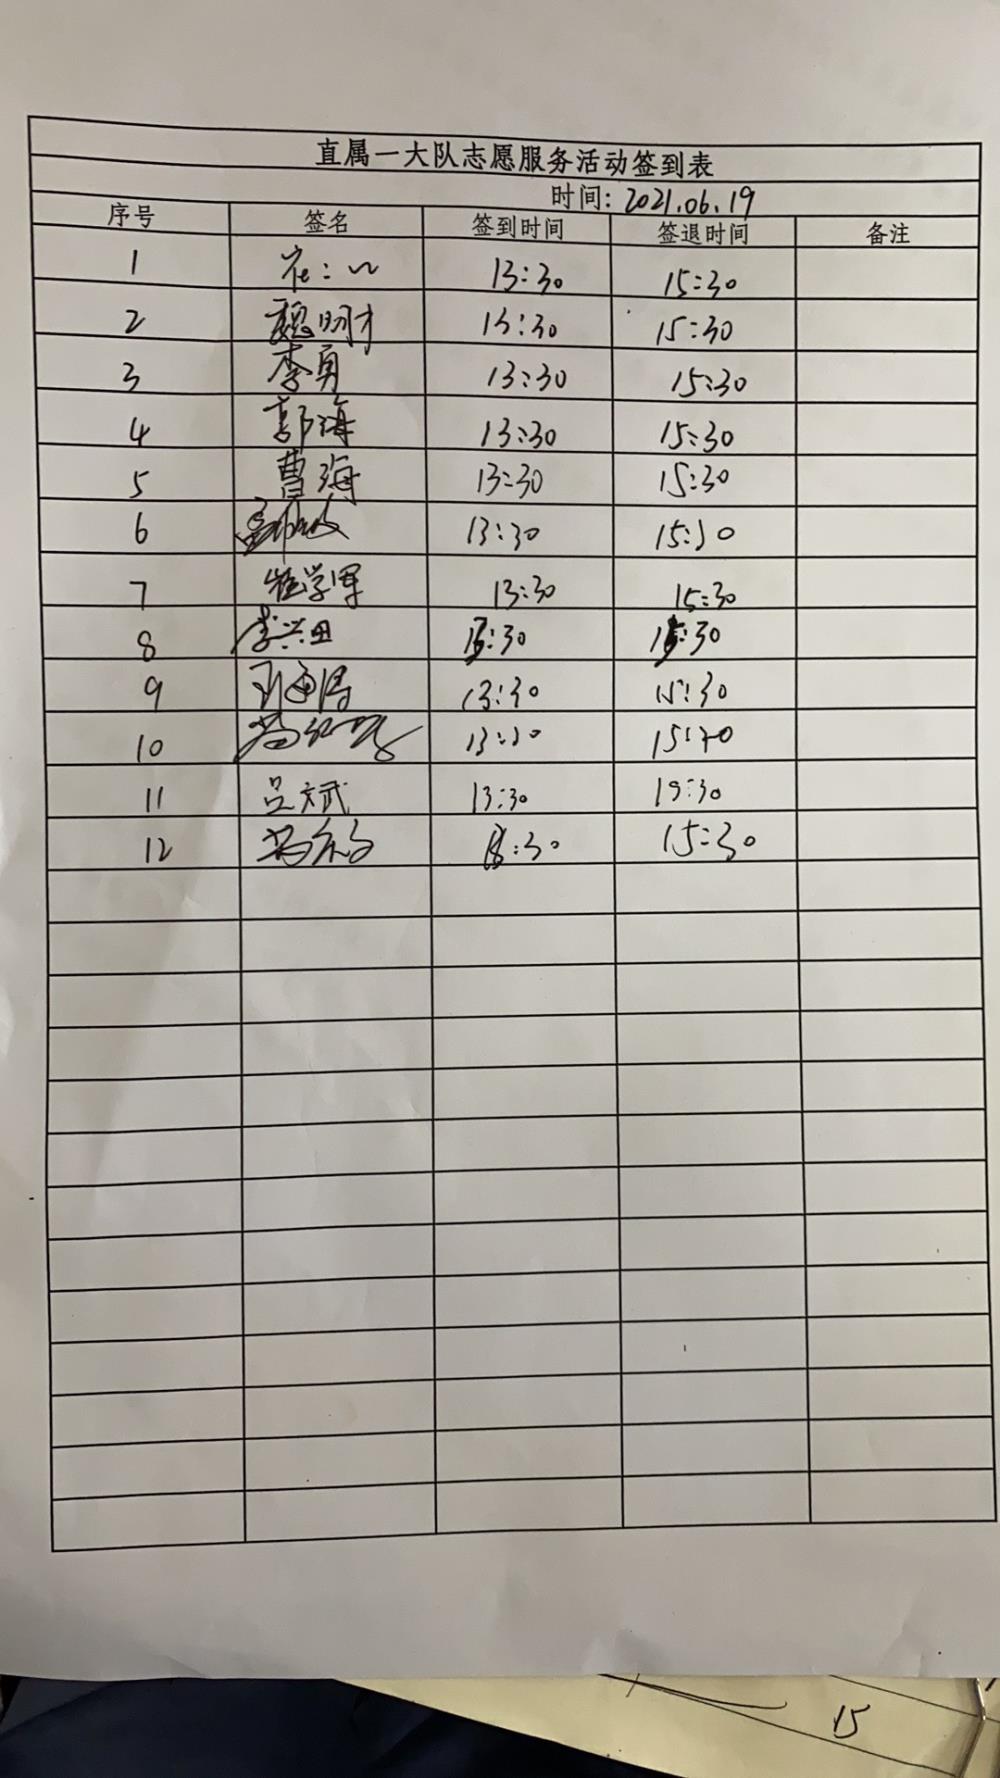 直属一大队志愿服务活动签到表
时间: 2021.06.19
序号 签名 签到时间 签退时间 备注
1 13:30 15:30
2 魏明才 13:30 15:30
3 李勇 13:30 15:30
4 郭海 13:30 15:30
5 曹海 13:30 15:30
6 13:30 15:30
7 学军 13:30 15:30
8 李兴田 13:30 15:30
9 13:30 15:30
10 13:30 15:30
11 吕文斌 13:30 15:30
12 13:30 15:30
15